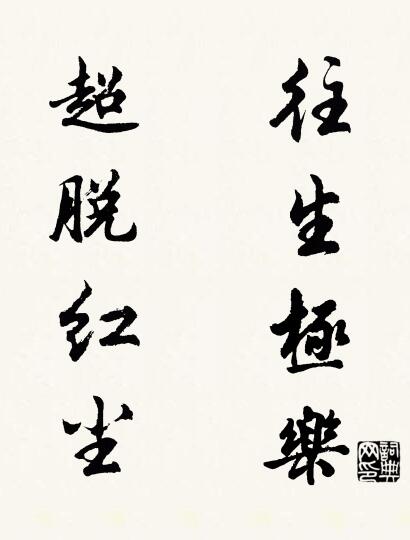 往生極樂
超脱红尘
詞典網印